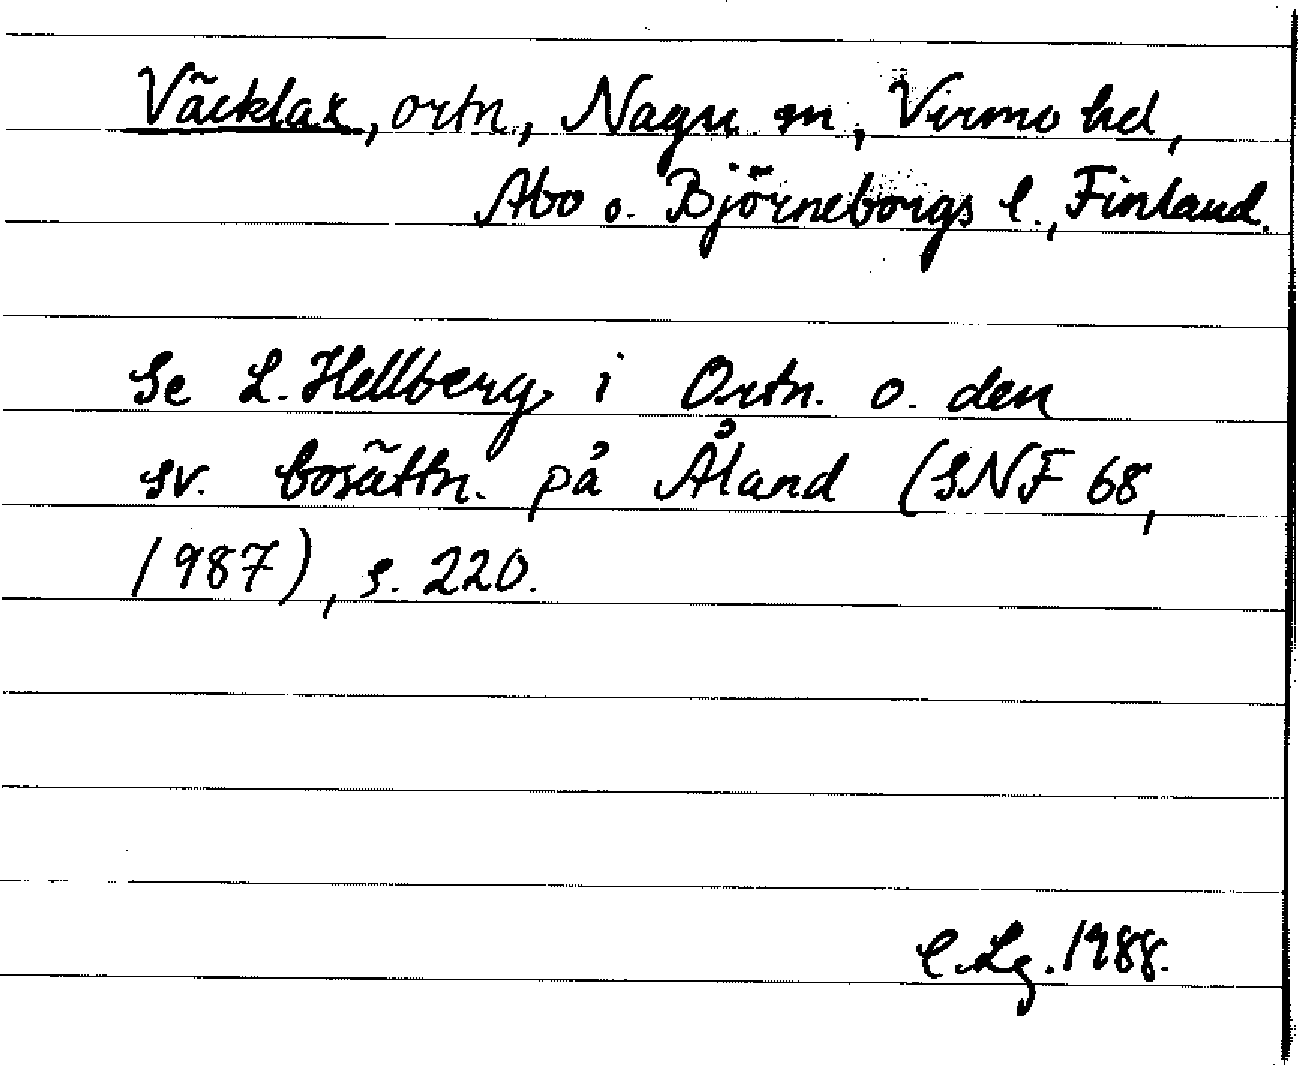 Väcklax, ortn., Nagu sn, Virmo hd,
Åbo o. Björneborgs l., Finland.
Se L. Hellberg, i Ortn. o. den
sv. bosättn. på Åland (SNF 68,
1987), s. 220.
C. Lg. 1988.